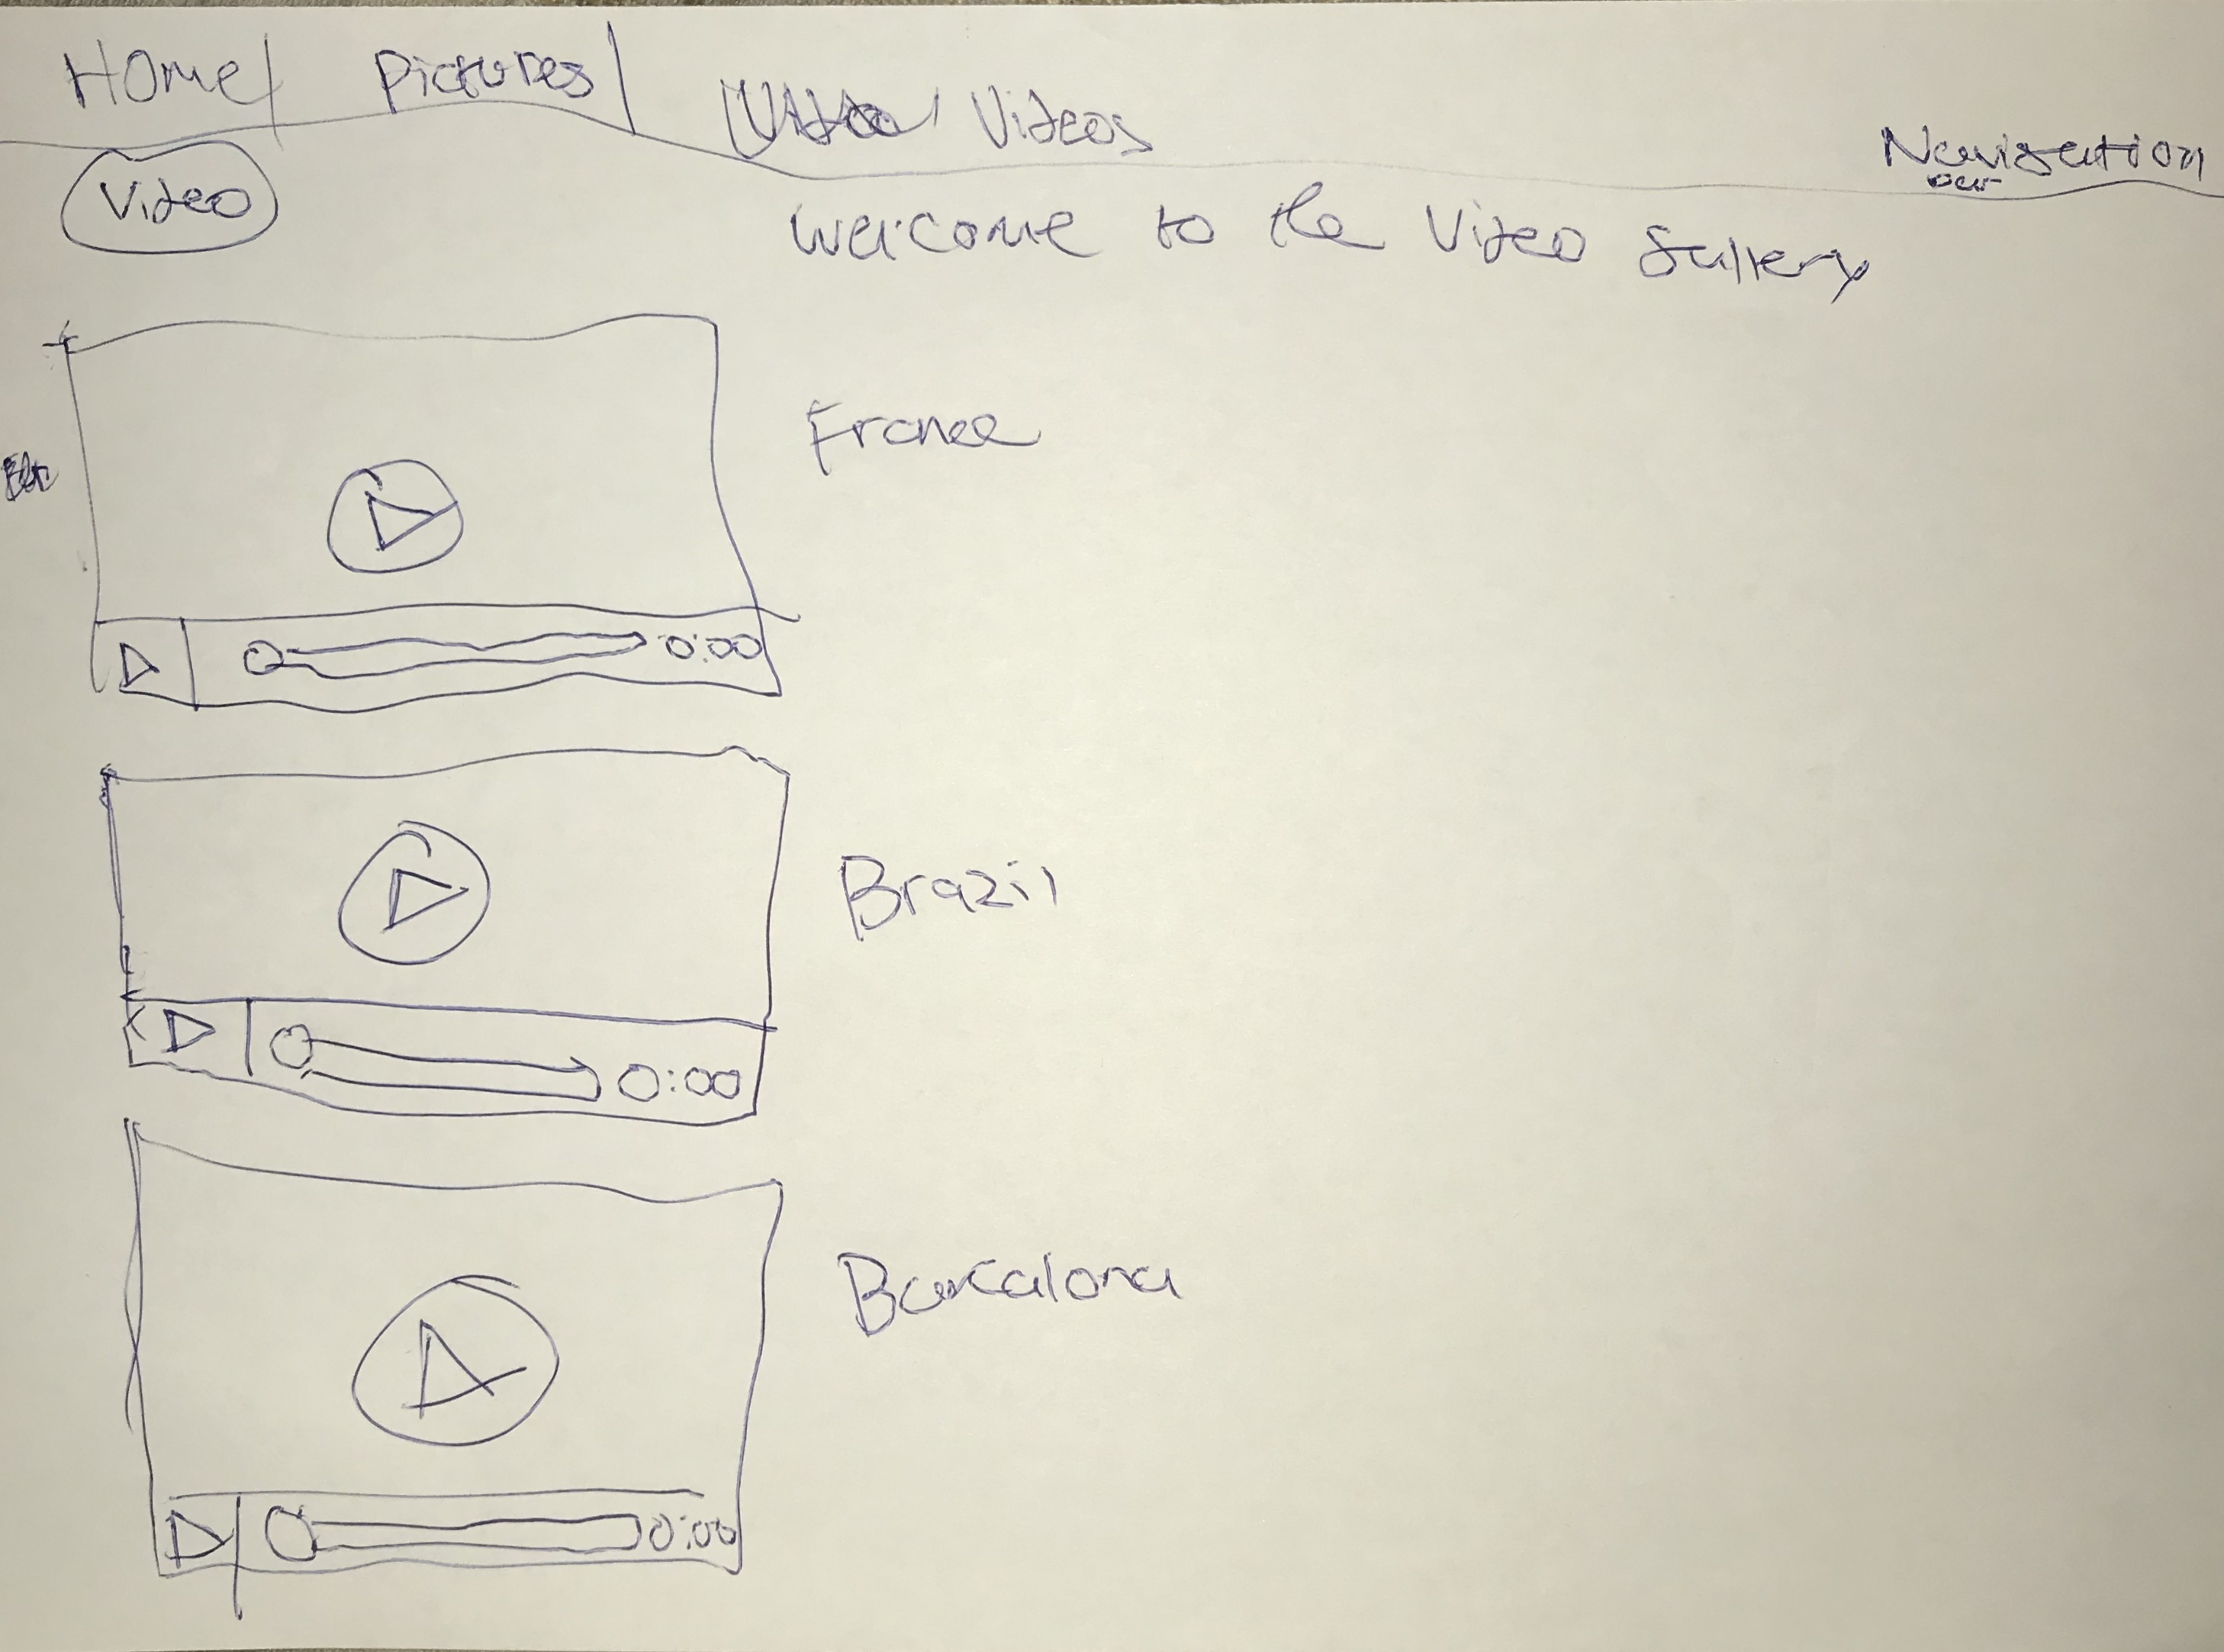 Home Pictures Videos
Navigation
bar
Video
Welcome to the Video gallery
France
0:00
Brazil
0:00
Barcalona
0:00